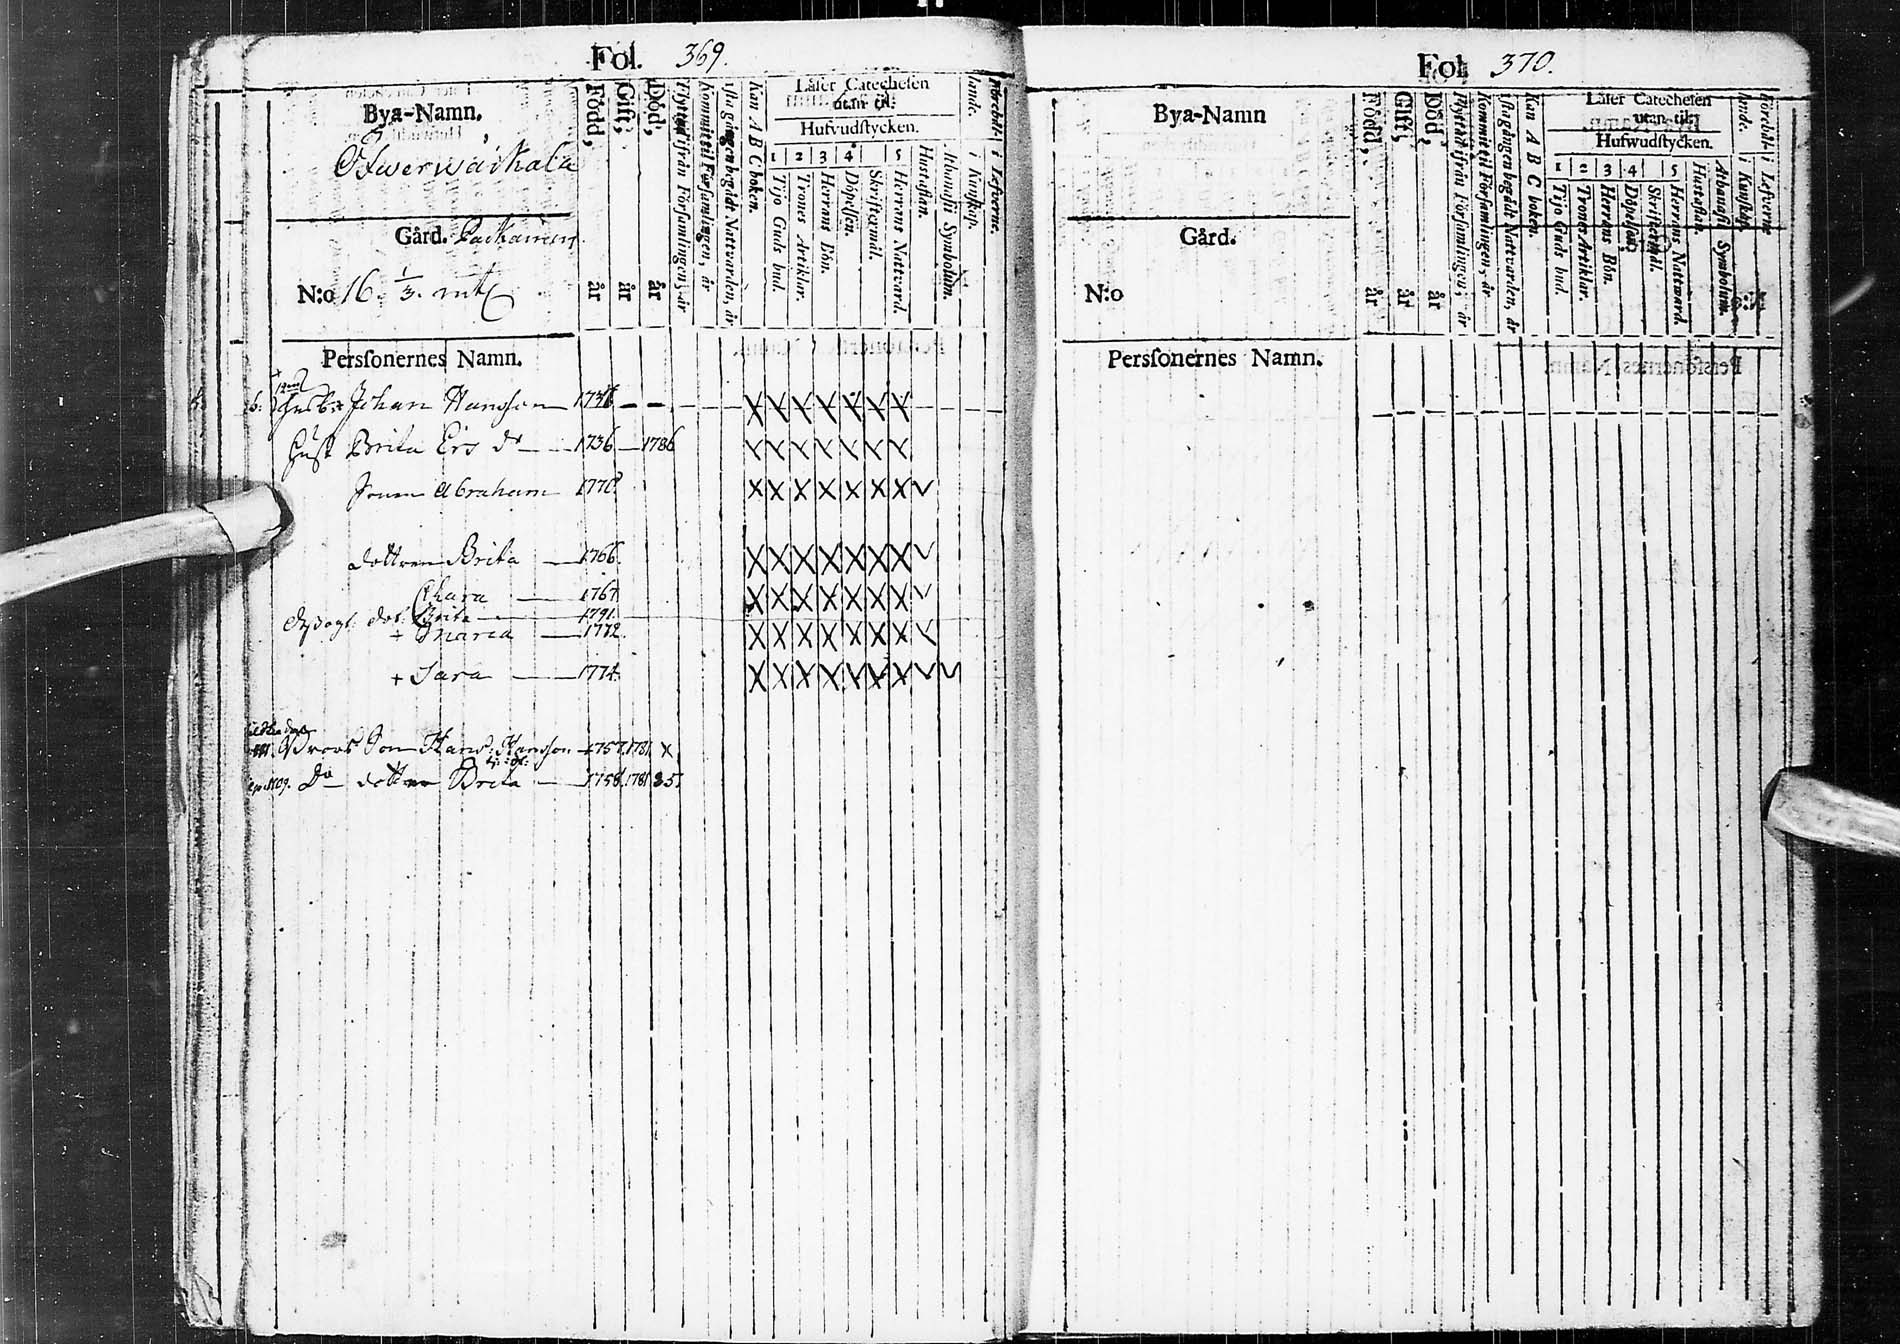 Fol. 369.
Bya-Namn.
Öfwerwäihala
Gård.
N:o 16. 1/3. mtl
Född, år
Gift, år
Död, år
Flyttad ifrån Församlingen, år
Kommit til Församlingen, år
1sta gången begådt Nattvarden, år
Kan A B C boken.
Läser Catechesen
utan til:
Hufvudstycken.
1 2 3 4 5
Tijo Guds bud.
Trones Artiklar.
Herrans Bön.
Döpelsen.
Skriftegmål.
Herrans Nattvard.
Hustaflan.
Athanasii Symbolum.
i Kunskap.
i Lefverne.
Personernes Namn.
Johan Hansson 174
Hust Brita Ers dr 1736 1786
Sonen Abraham 1770
dottren Brita 1766.
Chara 1767
dot: Brita 1791
+ Maria 1772.
+ Sara 1774.
Son Hans Hansson 1757. 1781. x
Do dottren Brita 1758. 1781
Fol 370.
Bya-Namn
Gård.
N:o
Född, år
Gift, år
Död, år
Flyttad ifrån Församlingen, år
Kommit til Församlingen, år
1sta gången begådt Nattvarden, år
Kan A B C boken.
Läser Catechesen
utan til:
Hufwudstycken.
1 2 3 4 5
Tijo Guds bud.
Trones Artiklar.
Herrans Bön.
Döpelsen.
Skriftermål.
Herrans Nattward.
Hustaflan.
Athanasii Symbolum.
i Kunskap.
i Lefverne
Personernes Namn.